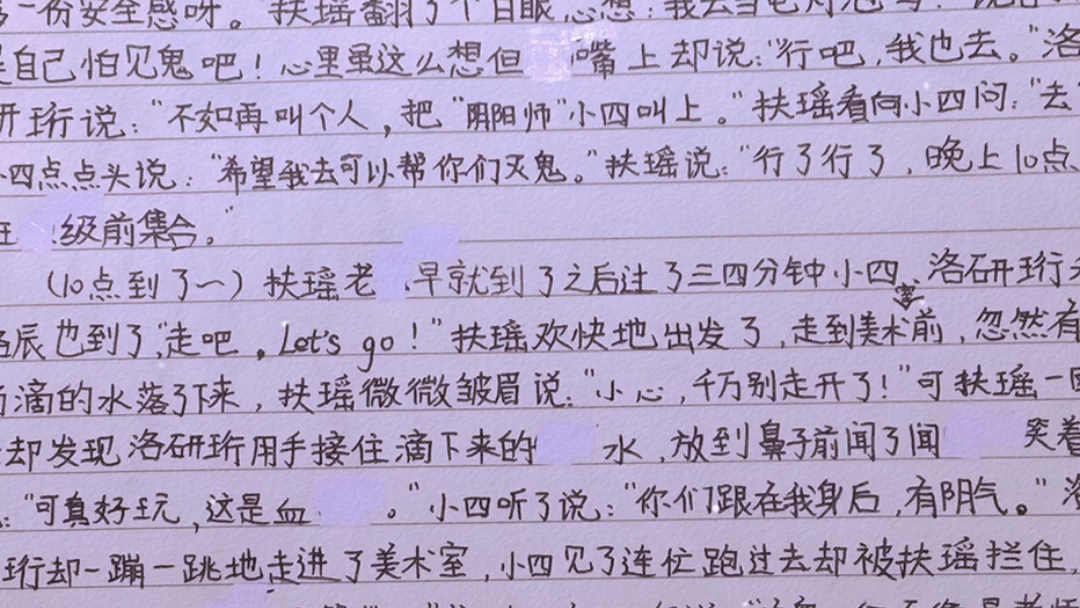 一份安全感呀。"扶瑶翻了个白眼心想:我去当电灯泡
是自己怕见鬼吧!心里虽这么想但嘴上却说:"行吧,我也去。"洛
研珩说:"不如再叫个人,把"阴阳师"小四叫上。"扶瑶看向小四问:"去
小四点点头说:"希望我去可以帮你们灭鬼。"扶瑶说:"行了行了,晚上10点
在级前集合。"
(10点到了一)扶瑶老早就到了之后过了三四分钟小四、洛研珩
辰也到了,"走吧。Let's go!"扶瑶欢快地出发了,走到美术室前,忽然有
滴的水落了下来,扶瑶微微皱眉说:"小心,千万别走开了!"可扶瑶一回
却发现洛研珩用手接住滴下来的水,放到鼻子前闻了闻笑着
:"可真好玩,这是血。"小四听了说:"你们跟在我身后,有阴气。"洛
珩却一蹦一跳地走进了美术室,小四见了连忙跑过去却被扶瑶拦住,